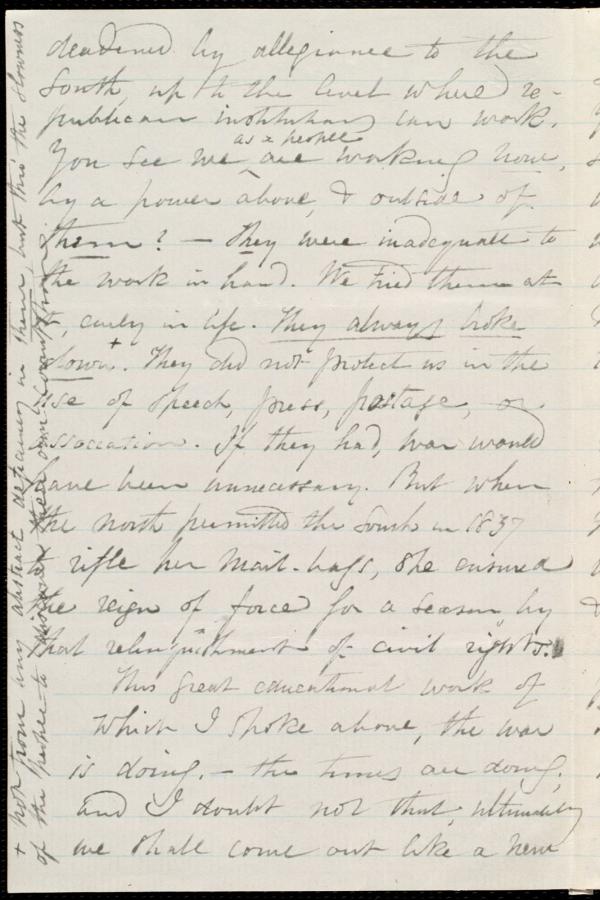 deadened by allegiance to the
South, up to the level where re-
publican institutions can work.
as a people
You see we are working now,
by a power above, & outside of
them? — They were inadequate to
the work in hand. We tried them at
it, early in life. They always broke
down.+ They did not protect us in the
use of speech, press, postage, or
association. If they had, war would
have been unnecessary. But when
the north permitted the South in 1837
to rifle her mail-bags, she ensured
the reign of force for a season by
that relinquishment of civil rights.
This great educational work of
which I spoke above, the war
is doing, — the times are doing,
and I doubt not that, ultimately
we shall come out like a new
+ not from any abstract deficiency in them, but thro' the slowness
of the people to discover their own